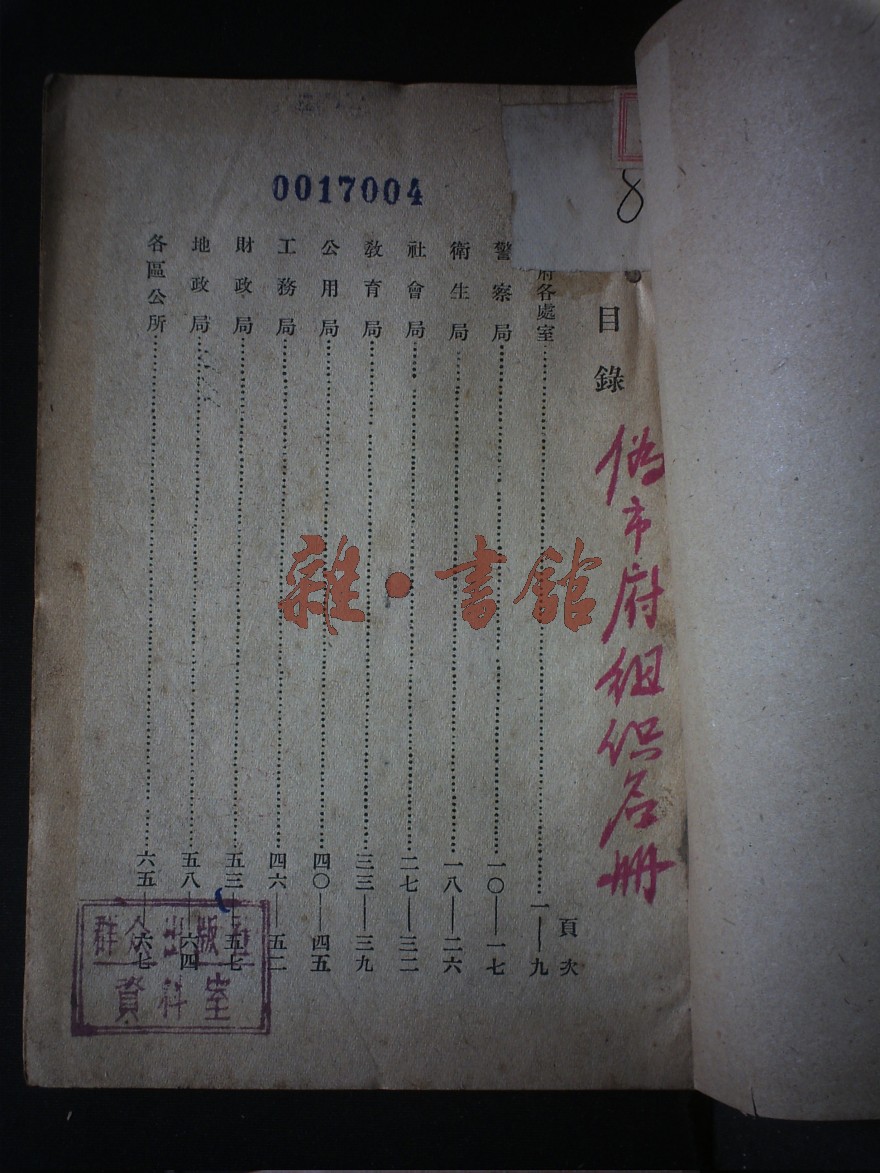 0017004
8
目錄
偽市府组织名册
頁次
府各處室 一——九
警察局 一〇——一七
衛生局 一八——二六
社會局 二七——三二
教育局 三三——三九
公用局 四〇——四五
工務局 四六——五二
財政局 五三——五七
地政局 五八——六四
各區公所 六五——六七
雜·書館
群众出版社
資料室